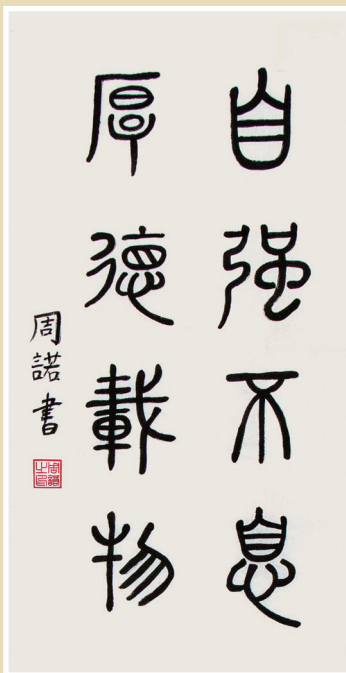 自强不息
厚德載物
周諾書